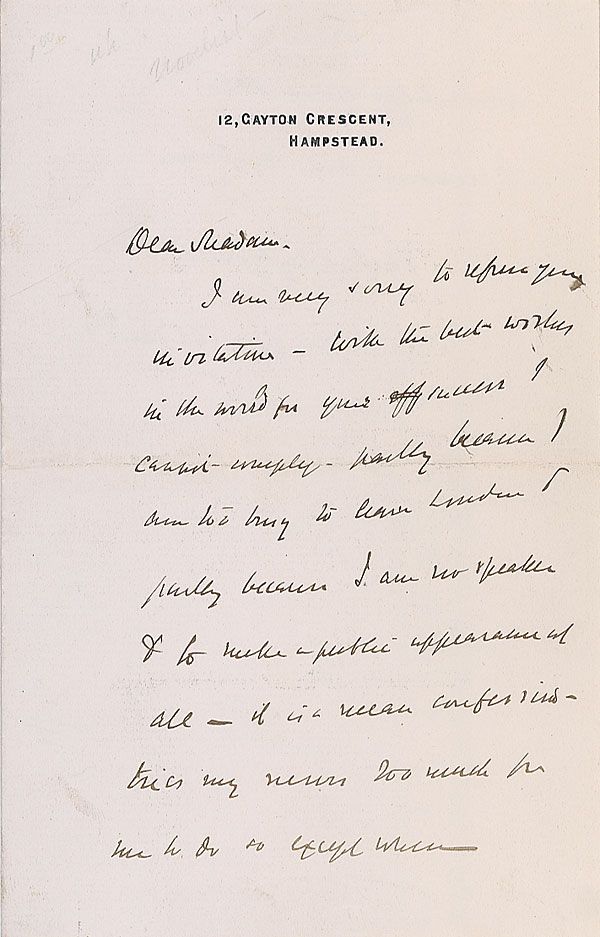 Novelist
12, GAYTON CRESCENT,
HAMPSTEAD.
Dear Madam.
I am very sorry to refuse your
invitation – with the best wishes
in the world for your success I
cannot comply – partly because I
am too busy to leave London &
partly because I am no speaker
& to make a public appearance at
all – it is a mean confession –
tries my nerves too much for
me to do so except when